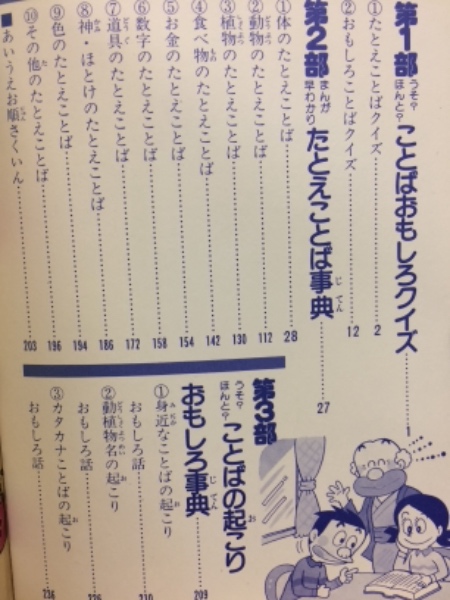 第1部 うそ？ほんと？ ことばおもしろクイズ……1
①たとえことばクイズ……2
②おもしろことばクイズ……12
第2部 まんが早わかり たとえことば事典……27
①体のたとえことば……28
②動物のたとえことば……112
③植物のたとえことば……130
④食べ物のたとえことば……142
⑤お金のたとえことば……154
⑥数字のたとえことば……158
⑦道具のたとえことば……172
⑧神・ほとけのたとえことば……186
⑨色のたとえことば……194
⑩その他のたとえことば……196
■あいうえお順さくいん……203
第3部 うそ？ほんと？ ことばの起こりおもしろ事典……209
①身近なことばの起こりおもしろ話……210
②動植物名の起こりおもしろ話……226
③カタカナことばの起こりおもしろ話……236